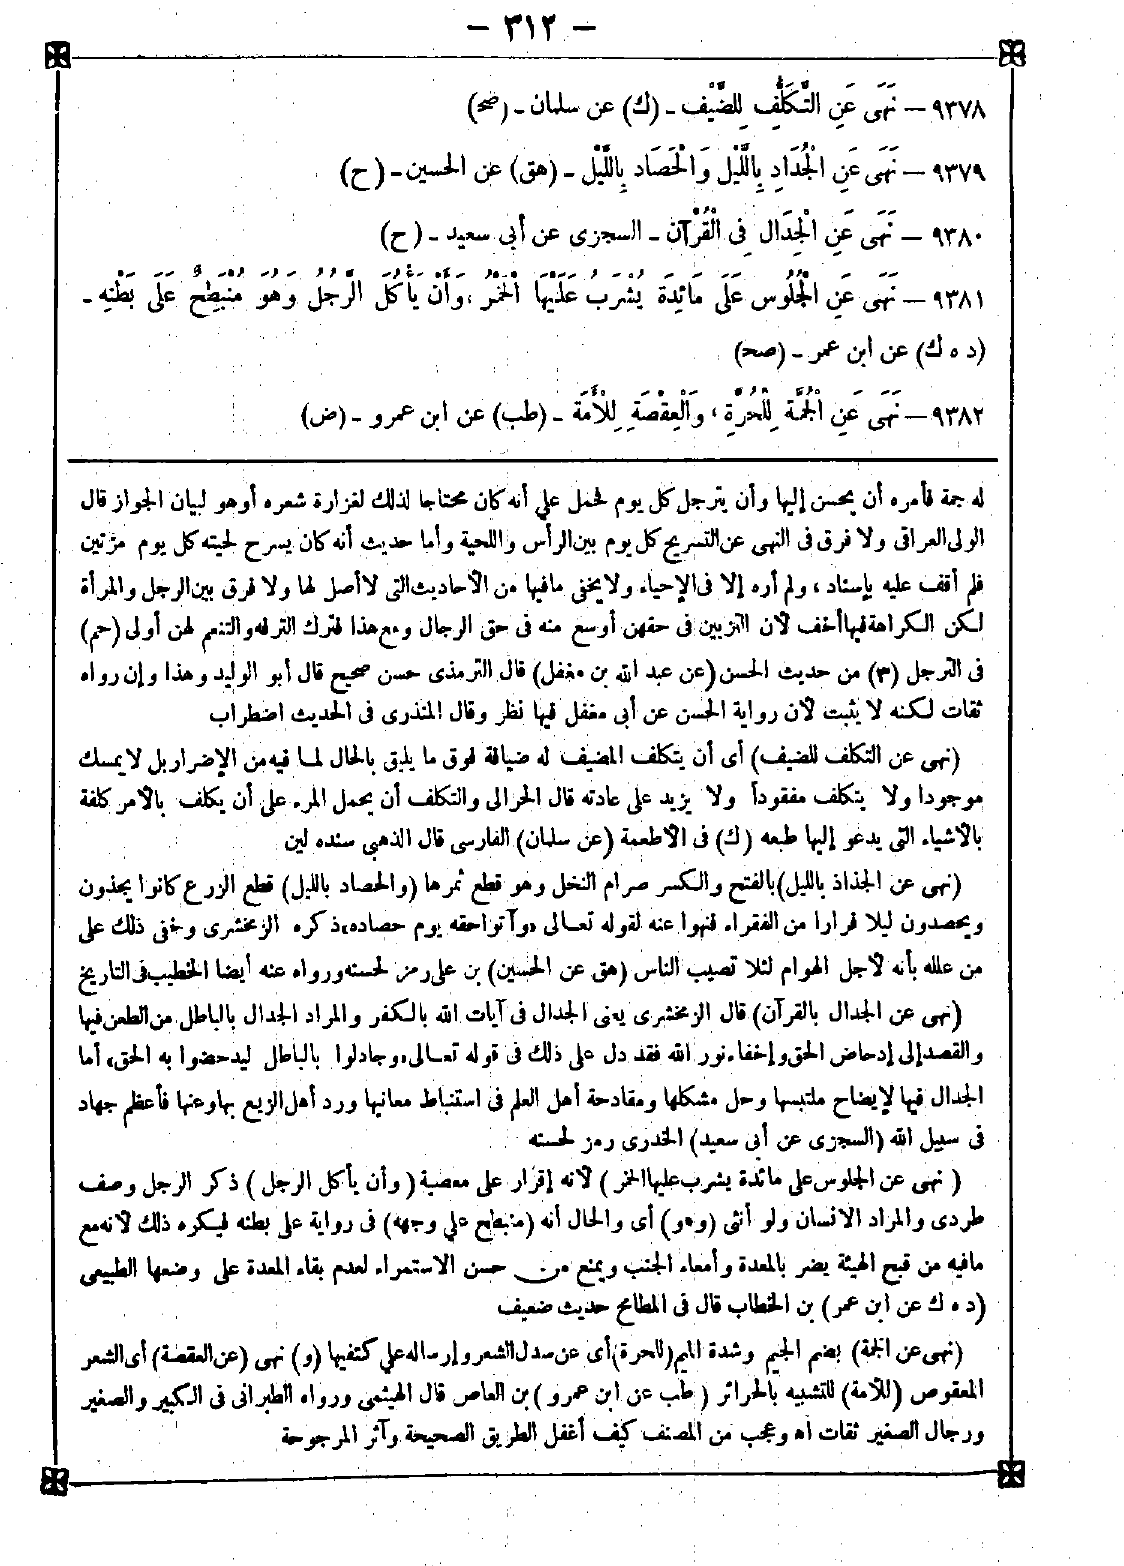 - ٣١٢ -
٩٣٧٨ - نَهَى عَنِ التَّكَلُّفِ لِلضَّيْفِ - (ك) عن سلمان - (صح)
٩٣٧٩ - نَهَى عَنِ الْجُدَادِ بِاللَّيْلِ وَالْحَصَادِ بِاللَّيْلِ - (هق) عن الحسين - (ح)
٩٣٨٠ - نَهَى عَنِ الْجِدَالِ فِى الْقُرْآنِ - السجزى عن أبى سعيد - (ح)
٩٣٨١ - نَهَى عَنِ الْجُلُوسِ عَلَى مَائِدَةٍ يُشْرَبُ عَلَيْهَا الْخَمْرُ، وَأَنْ يَأْكُلَ الرَّجُلُ وَهُوَ مُنْبَطِحٌ عَلَى بَطْنِهِ -
(د ه ك) عن ابن عمر - (صح)
٩٣٨٢ - نَهَى عَنِ الْجُمَّةِ لِلْحُرَّةِ، وَالْعِقْصَةِ لِلْأَمَةِ - (طب) عن ابن عمرو - (ض)
له جمة فأمره أن يحسن إليها وأن يترجل كل يوم فحمل على أنه كان محتاجا لذلك لغزارة شعره أو هو لبيان الجواز قال
الولى العراقى ولا فرق فى النهى عن التسريح كل يوم بين الرأس واللحية وأما حديث أنه كان يسرح لحيته كل يوم مرّتين
فلم أقف عليه بإسناد، ولم أره إلا فى الإحياء ولا يخفى ما فيها من الأحاديث التى لا أصل لها ولا فرق بين الرجل والمرأة
لكن الكراهة فيها أخف لأن التزيين فى حقهن أوسع منه فى حق الرجال ومع هذا فترك الترفه والتنعم لهن أولى (حم)
فى الترجل (٣) من حديث الحسن (عن عبد الله بن مغفل) قال الترمذى حسن صحيح قال أبو الوليد وهذا وإن رواه
ثقات لكنه لا يثبت لأن رواية الحسن عن أبى مغفل فيها نظر وقال المنذرى فى الحديث اضطراب
(نهى عن التكلف للضيف) أى أن يتكلف المضيف له ضيافة فوق ما يليق بالحال لما فيه من الإضرار بل لا يمسك
موجودا ولا يتكلف مفقوداً ولا يزيد على عادته قال الحرالى والتكلف أن يحمل المرء على أن يكلف بالأمر كلفة
بالأشياء التى يدعو إليها طبعه (ك) فى الأطعمة (عن سلمان) الفارسى قال الذهبى سنده لين
(نهى عن الجذاذ بالليل) بالفتح والكسر صرام النخل وهو قطع ثمرها (والحصاد بالليل) قطع الزرع كانوا يجذون
ويحصدون ليلا فرارا من الفقراء فنهوا عنه لقوله تعالى «وآتوا حقه يوم حصاده» ذكره الزمخشرى وخفى ذلك على
من علله بأنه لأجل الهوام لئلا تصيب الناس (هق عن الحسين) بن على رمز لحسنه ورواه عنه أيضا الخطيب فى التاريخ
(نهى عن الجدال بالقرآن) قال الزمخشرى يعنى الجدال فى آيات الله بالكفر والمراد الجدال بالباطل من الطعن فيها
والقصد إلى إدحاض الحق وإخفاء نور الله فقد دل على ذلك فى قوله تعالى «وجادلوا بالباطل ليدحضوا به الحق» أما
الجدال فيها لإيضاح ملتبسها وحل مشكلها ومقادحة أهل العلم فى استنباط معانيها ورد أهل الزيغ بها وعنها فأعظم جهاد
فى سبيل الله (السجزى عن أبى سعيد) الخدرى رمز لحسنه
(نهى عن الجلوس على مائدة يشرب عليها الخمر) لأنه إقرار على معصية (وأن يأكل الرجل) ذكر الرجل وصف
طردى والمراد الانسان ولو أنثى (وهو) أى والحال أنه (منبطح على وجهه) فى رواية على بطنه فيكره ذلك لأنه مع
ما فيه من قبح الهيئة يضر بالمعدة وأمعاء الجنب ويمنع من حسن الاستمراء لعدم بقاء المعدة على وضعها الطبيعى
(د ه ك عن ابن عمر) بن الخطاب قال فى المطامح حديث ضعيف
(نهى عن الجمة) بضم الجيم وشدة الميم (للحرة) أى عن سدل الشعر وإرساله على كتفيها (و) نهى (عن العقصة) أى الشعر
المعقوص (للأمة) للتشبيه بالحرائر (طب عن ابن عمرو) بن العاص قال الهيثمى ورواه الطبرانى فى الكبير والصغير
ورجال الصغير ثقات اه وعجب من المصنف كيف أغفل الطريق الصحيحة وآثر المرجوحة